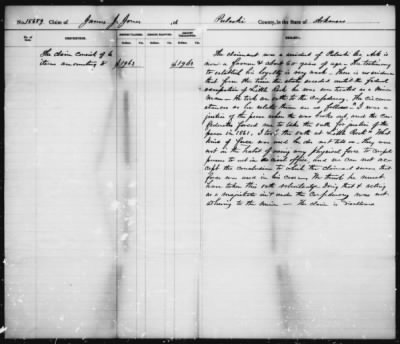 No. 15889 Claim of James J. Jones of Pulaski County, in the State of Arkansas
No. of Item. DESCRIPTION. AMOUNT CLAIMED. AMOUNT ALLOWED. AMOUNT DISALLOWED. REMARKS.
Dollars. Cts. Dollars. Cts. Dollars. Cts.
The claim consist of 
items amounting to $1962 $1962
The claimant was a resident of Pulaski Co. Ark is
now a farmer & about 60 years of age. The testimony
to establish his loyalty is very weak. There is no evidence
that from the time the state seceded until the federal
occupation of Little Rock he was ever treated as a Union
man. He took an oath to the Confederacy. The circum
stances as he relates them are as follows - I was a
justice of the peace when the war broke out, and the Con
federates forced me to take the oath for justice of the
peace in 1861, I took the oath at Little Rock. What
kind of force was used he did not tell us. They were
not in the habit of using any physical force to compel
persons to act in the civil office, and we can not ac
cept the conclusion to which the claimant swears that
force was used in his case. We think he must
have taken this oath voluntarily. Doing that & acting
as a magistrate in & under the Confederacy was not
adhering to the Union - The claim is disallowed